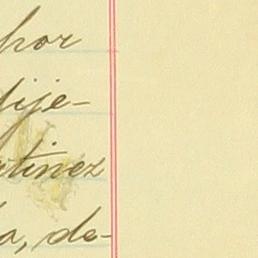 por
fije-
rtinez
a, de-